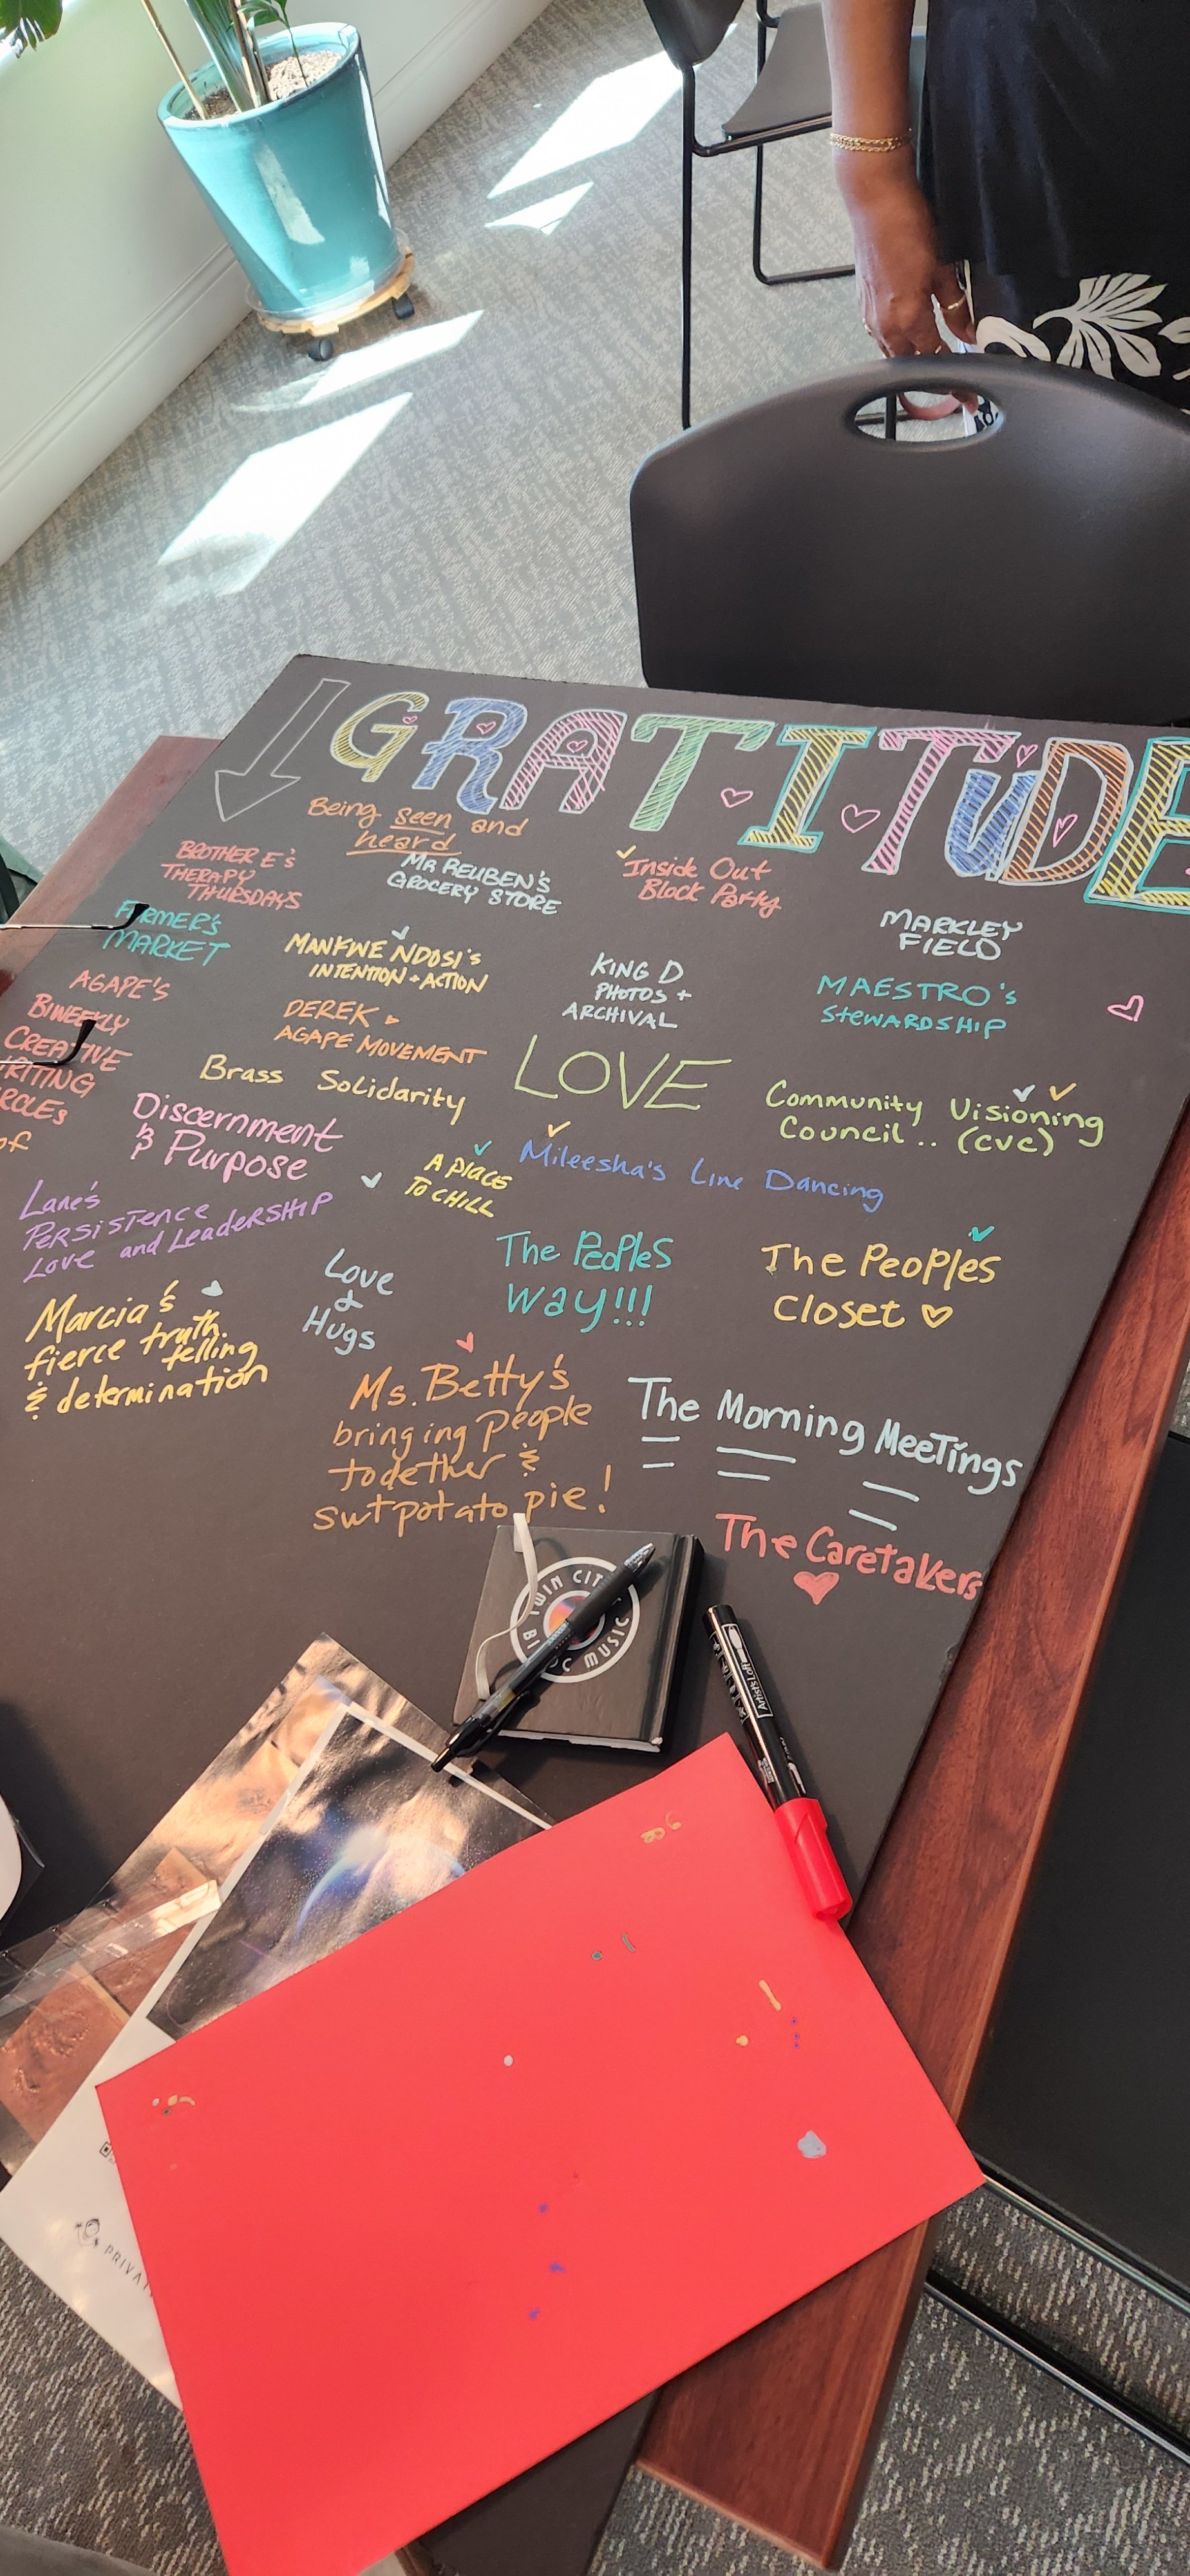 GRATITUDE
Being seen and
heard
BROTHER E's
THERAPY
THURSDAYS
MR REUBEN'S
GROCERY STORE
Inside Out
Block Party
MARKLEY
FIELD
FARMER'S
MARKET
MANKWE NDOSI'S
INTENTION + ACTION
KING D
PHOTOS +
ARCHIVAL
MAESTRO's
STEWARDSHIP
AGAPE'S
BIWEEKLY
CREATIVE
RITING
RCLEs
of
DEREK
AGAPE MOVEMENT
Brass Solidarity
LOVE
Community Visioning
Council.. (CVC)
Discernment
& Purpose
A PLACE
TO CHILL
Mileesha's Line Dancing
Lane's
PERSISTENCE
Love and LeadeRSHIP
Love
&
Hugs
The PeoPles
Way!!!
The PeoPles
Closet
Marcia's
fierce truth
telling
& determination
Ms. Betty's
bringing people
together &
swtpotato pie!
The Morning MeeTings
The Caretakers
TWIN CIT
BI OC MUSIC
Artist's Loft
PRIVAT